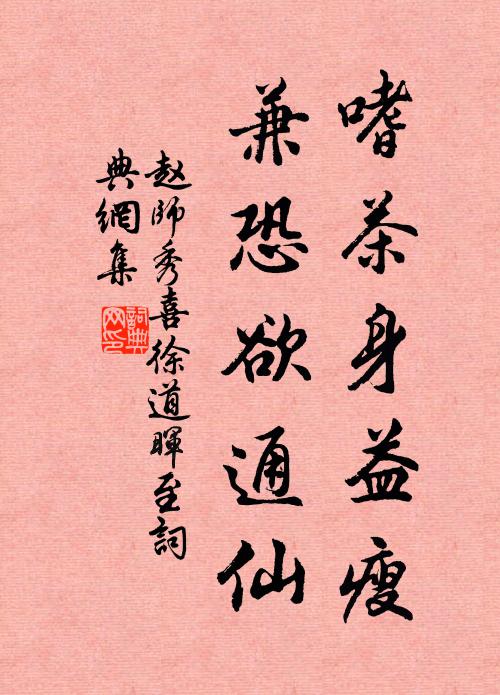 嗜茶身益瘦
兼恐欲通仙
赵師秀喜徐道暉至詞
典網集
詞典網印